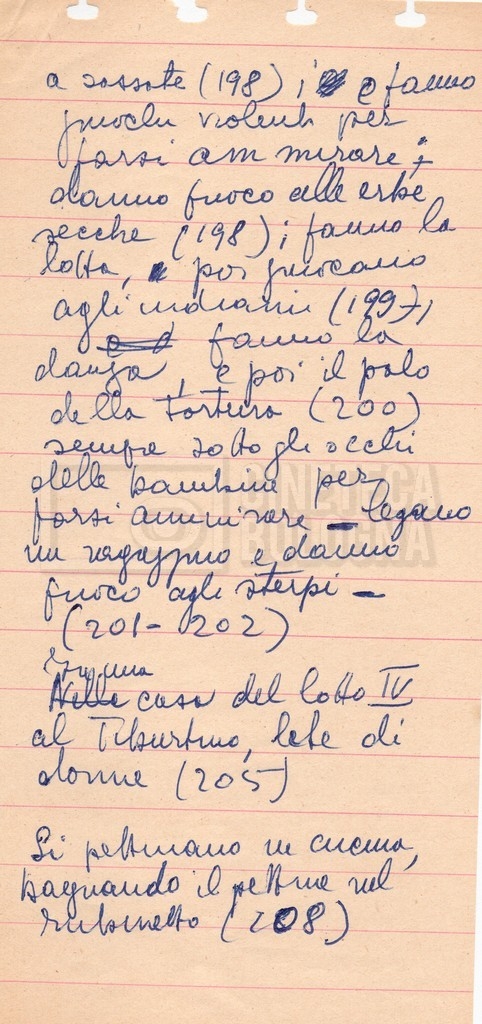 a sassate (198); e fanno
giuochi violenti per
farsi ammirare;
danno fuoco alle erbe
secche (198); fanno la
lotta, poi giuocano
agli indiani (1997),
fanno la
danza, e poi il palo
della tortura (200)
sempre sotto gli occhi
delle bambine per
farsi ammirare — legano
un ragazzino e danno
fuoco agli sterpi —
(201-202)
In una
Nella casa del lotto IV
al Tiburtino, lite di
donne (205)
Si pettinano in cucina,
bagnando il pettine nel
rubinetto (208)
CINETECA
BOLOGNA